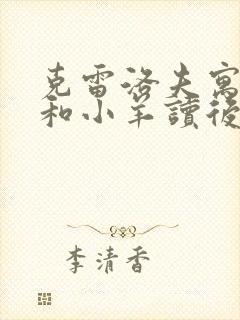 克雷洛夫寓
和小羊讀後
李清香